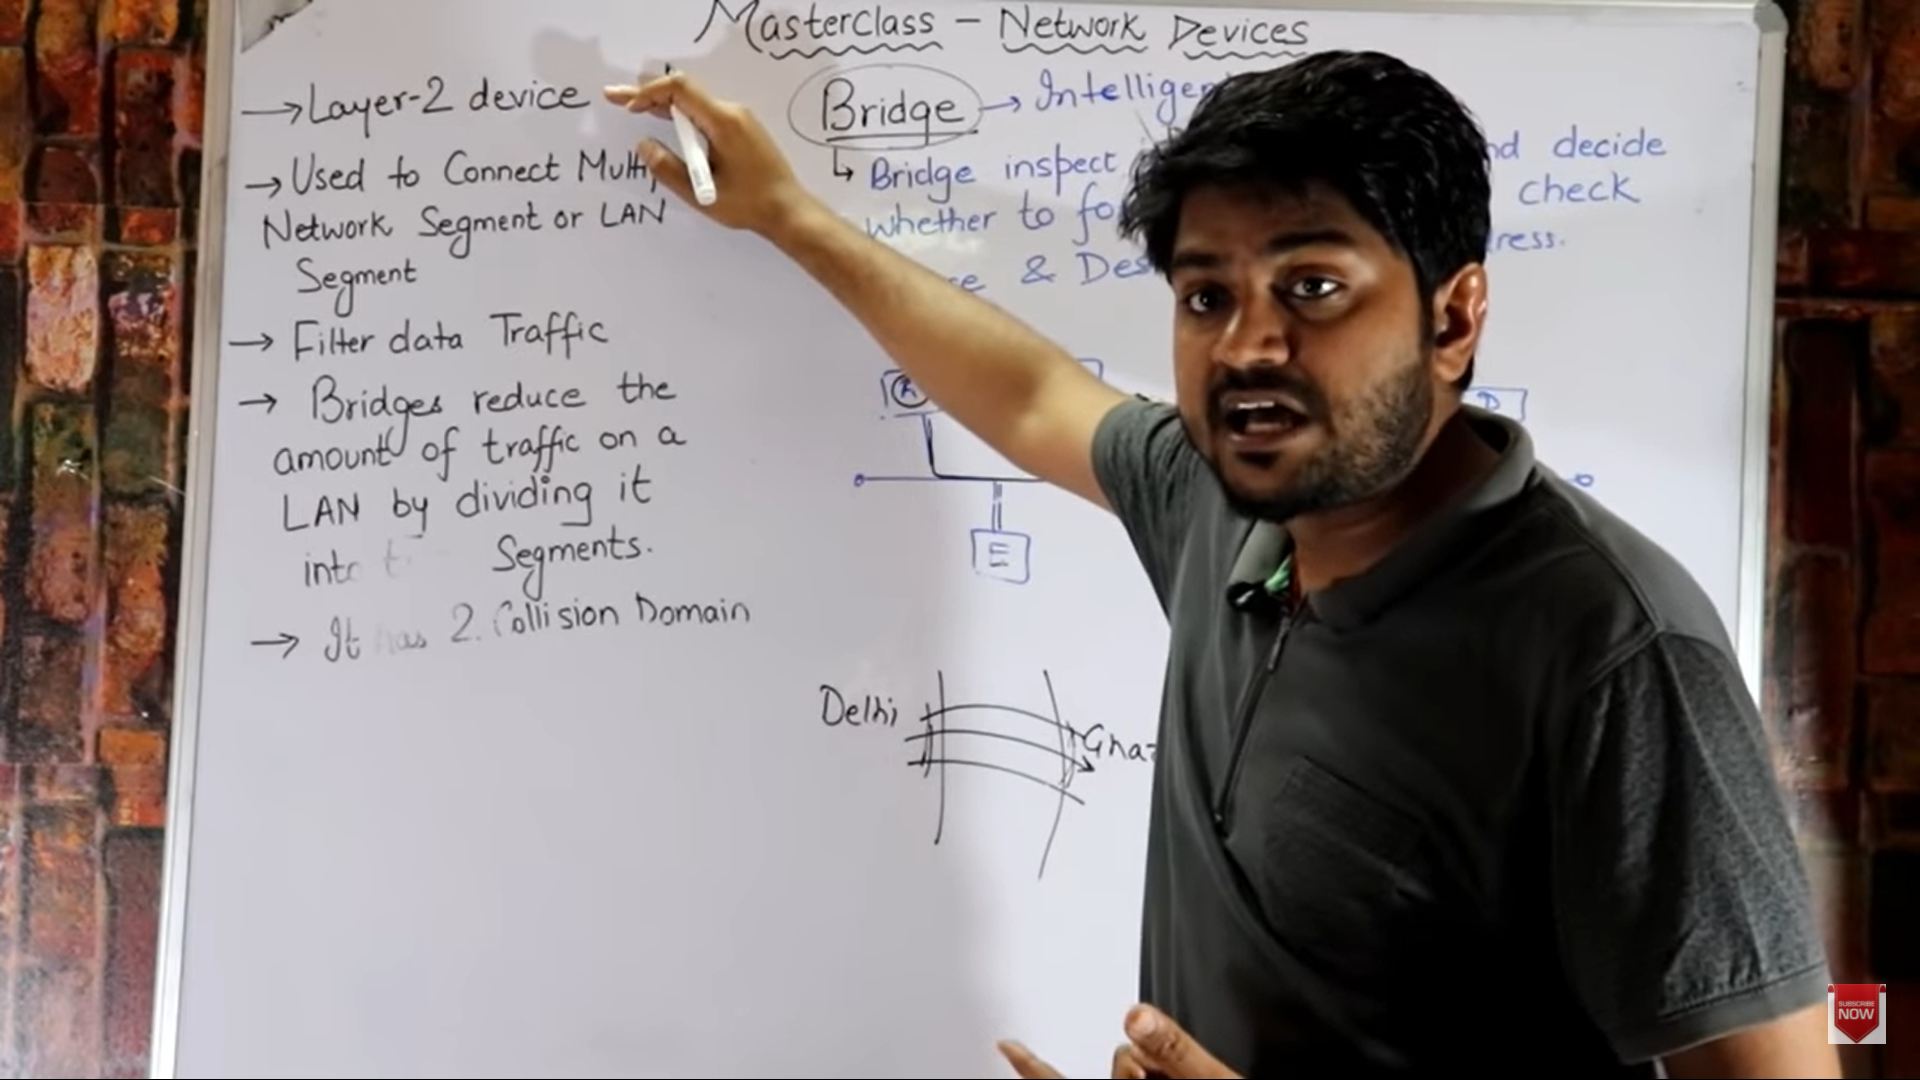 Masterclass - Network Devices
→ Layer-2 device
→ Used to Connect
Network Segment or LAN
Segment
→ Filter data Traffic
→ Bridges reduce the
amount of traffic on a
LAN by dividing it
into Segments.
→ It has 2. Collision Domain
Bridge →
↳ Bridge inspect nd decide
whether to check
& ress.
A
D
E
Delhi
SUBSCRIBE
NOW